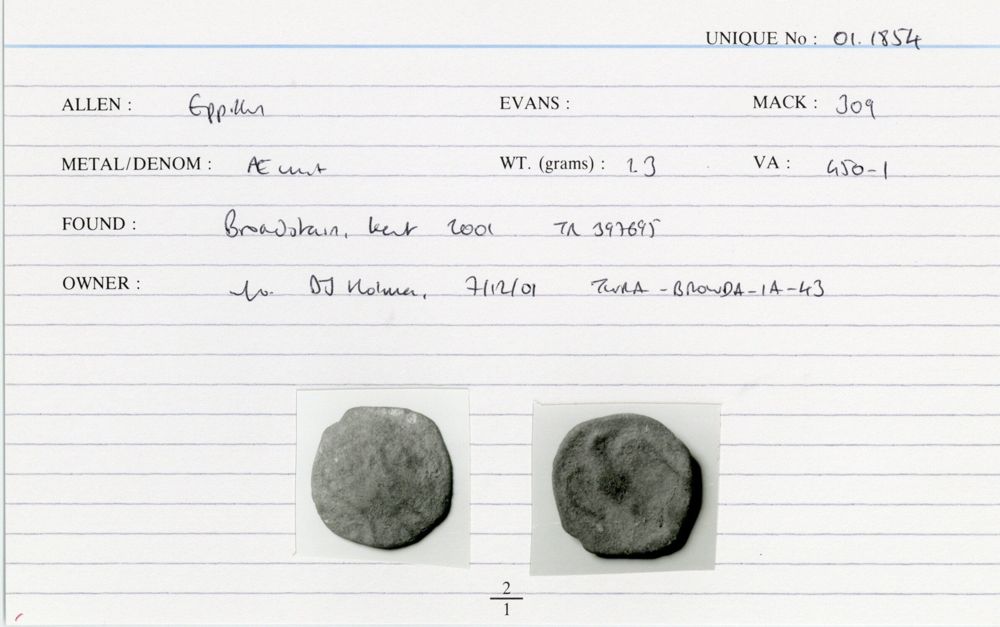 UNIQUE No : 01.1854
ALLEN : Eppillus EVANS : MACK : 309
METAL/DENOM : Æ unit WT. (grams) : 1.3 VA : 450-1
FOUND : Broadstairs, Kent 2001 TR 397695
OWNER : DJ Holman, 7/12/01 -1A-43
2
1